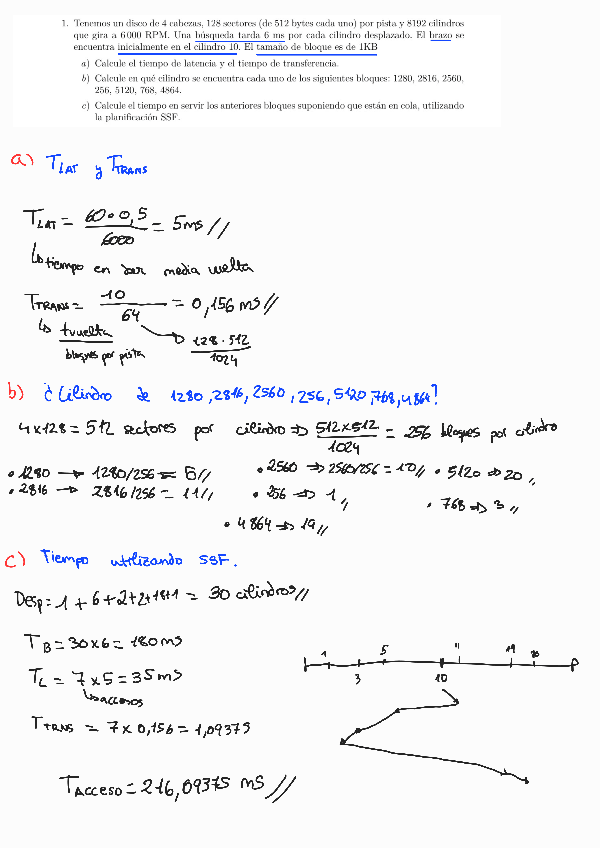 1. Tenemos un disco de 4 cabezas, 128 sectores (de 512 bytes cada uno) por pista y 8192 cilindros
que gira a 6000 RPM. Una búsqueda tarda 6 ms por cada cilindro desplazado. El brazo se
encuentra inicialmente en el cilindro 10. El tamaño de bloque es de 1KB
a) Calcule el tiempo de latencia y el tiempo de transferencia.
b) Calcule en qué cilindro se encuentra cada uno de los siguientes bloques: 1280, 2816, 2560,
256, 5120, 768, 4864.
c) Calcule el tiempo en servir los anteriores bloques suponiendo que están en cola, utilizando
la planificación SSF.
a) TLAT y TTRANS
TLAT = 60·0,5 / 6000 = 5ms //
↳ tiempo en dar media vuelta
TTRANS = 10 / 64 = 0,156 ms //
↳ tvuelta / bloques por pista → 128·512 / 1024
b) ¿Cilindro de 1280, 2816, 2560, 256, 5120, 768, 4864?
4x128 = 512 sectores por cilindro ⇒ 512x512 / 1024 = 256 bloques por cilindro
• 1280 → 1280/256 = 5// • 2560 ⇒ 2560/256 = 10 // • 5120 ⇒ 20 //
• 2816 → 2816/256 = 11// • 256 ⇒ 1 // • 768 ⇒ 3 //
• 4864 ⇒ 19 //
c) Tiempo utilizando SSF.
Desp = 1 + 6 + 2 + 2 + 18 + 1 = 30 cilindros //
TB = 30x6 = 180 ms
1 5 11 19 20
3 10
TL = 7 x 5 = 35 ms
↳ accesos
TTRNS = 7 x 0,156 = 1,09375
TAcceso = 216,09375 ms //